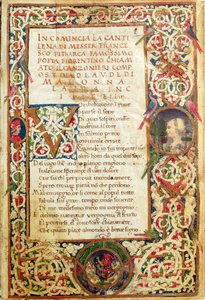 INCOMINCIA LA CANTI
LENA DI MESSER FRANCE
SCO PETRARCA FAMOSISSIMO
POETA FIORENTINO CHIAMA
TO IL CANZONIERI COM
POSTE IN LAUDE DI
MADONNA
LAURA INC
V
Oi chascoltate in rime
sparse il suono
Di quei sospiri ondio
nudriva il core
In sul mio primo
giovenile errore
Quando era in parte
altro hom da quel chi son
Del vario stile in chio piango et ragiono
fra le vane speranze el van dolore
Ove sia chi per prova intenda amore
Spero trovar pietà non che perdono
Ma ben veggio or si come al popol tutto
Favola fui gran tempo onde sovente
Di me medesmo meco mi vergogno
Et del mio vaneggiar vergogna è il frutto
El pentersi el conoscer chiaramente
Che quanto piace al mondo è breve sogno